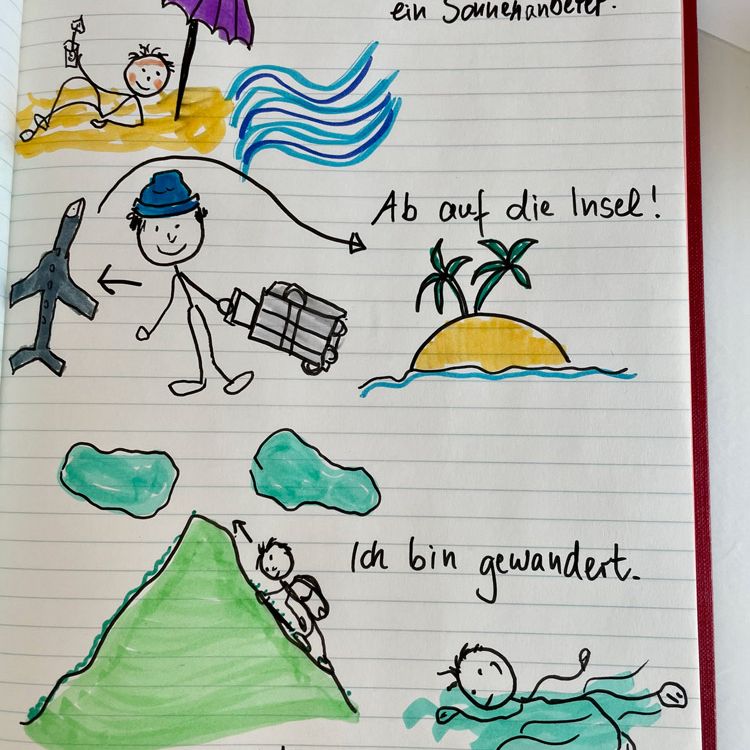 ein Sonnenanbeter.
Ab auf die Insel!
Ich bin gewandert.